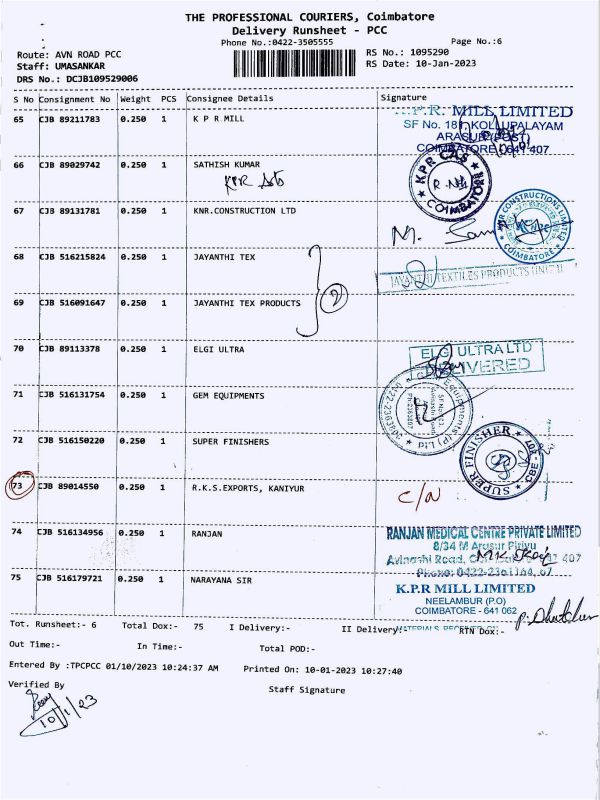 THE PROFESSIONAL COURIERS, Coimbatore
Delivery Runsheet - PCC
Phone No.:0422-3505555
Page No.:6
Route: AVN ROAD PCC
Staff: UMASANKAR
DRS No.: DCJB109529006
RS No.: 1095290
RS Date: 10-Jan-2023
S No Consignment No Weight PCS Consignee Details Signature
65 CJB 89211783 0.250 1 K P R.MILL
K.P.R. MILL LIMITED
SF No. 181, KOLLUPALAYAM
ARASUR (POST)
COIMBATORE - 641 407
66 CJB 89029742 0.250 1 SATHISH KUMAR
KPR
KPR CAS
COIMBATORE
67 CJB 89131781 0.250 1 KNR.CONSTRUCTION LTD
M.
CONSTRUCTIONS LIMITED
COIMBATORE
68 CJB 516215824 1 0.250 JAYANTHI TEX
2
JAYANTHI TEXTILES PRODUCTS UNIT
69 CJB 516091647 0.250 1 JAYANTHI TEX PRODUCTS
70 CJB 89113378 0.250 1 ELGI ULTRA
ELGI ULTRA LTD
DELIVERED
71 CJB 516131754 0.250 1 GEM EQUIPMENTS
Equipments (P) Ltd
72 CJB 516150220 0.250 1 SUPER FINISHERS
SUPER FINISHER
CBE - 407
73 CJB 89014550 0.250 1 R.K.S.EXPORTS, KANIYUR
C/N
74 CJB 516134956 0.250 1 RANJAN
RANJAN MEDICAL CENTRE PRIVATE LIMITED
8/34 M Arasur Pirivu
Avinashi Road, 407
75 CJB 516179721 0.250 1 NARAYANA SIR
K.P.R MILL LIMITED
NEELAMBUR (P.O)
COIMBATORE - 641 062
MATERIALS RECEIVED
Tot. Runsheet:- 6 Total Dox:- 75 I Delivery:- II Delivery:- RTN Dox:-
Out Time:- In Time:- Total POD:-
Entered By :TPCPCC 01/10/2023 10:24:37 AM Printed On: 10-01-2023 10:27:40
Verified By
Staff Signature
10/1/23